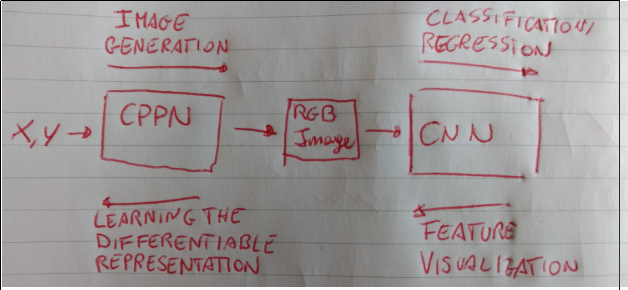 IMAGE
GENERATION
CLASSIFICATION/
REGRESSION
X,Y
CPPN
RGB
Image
CNN
LEARNING THE
DIFFERENTIABLE
REPRESENTATION
FEATURE
VISUALIZATION